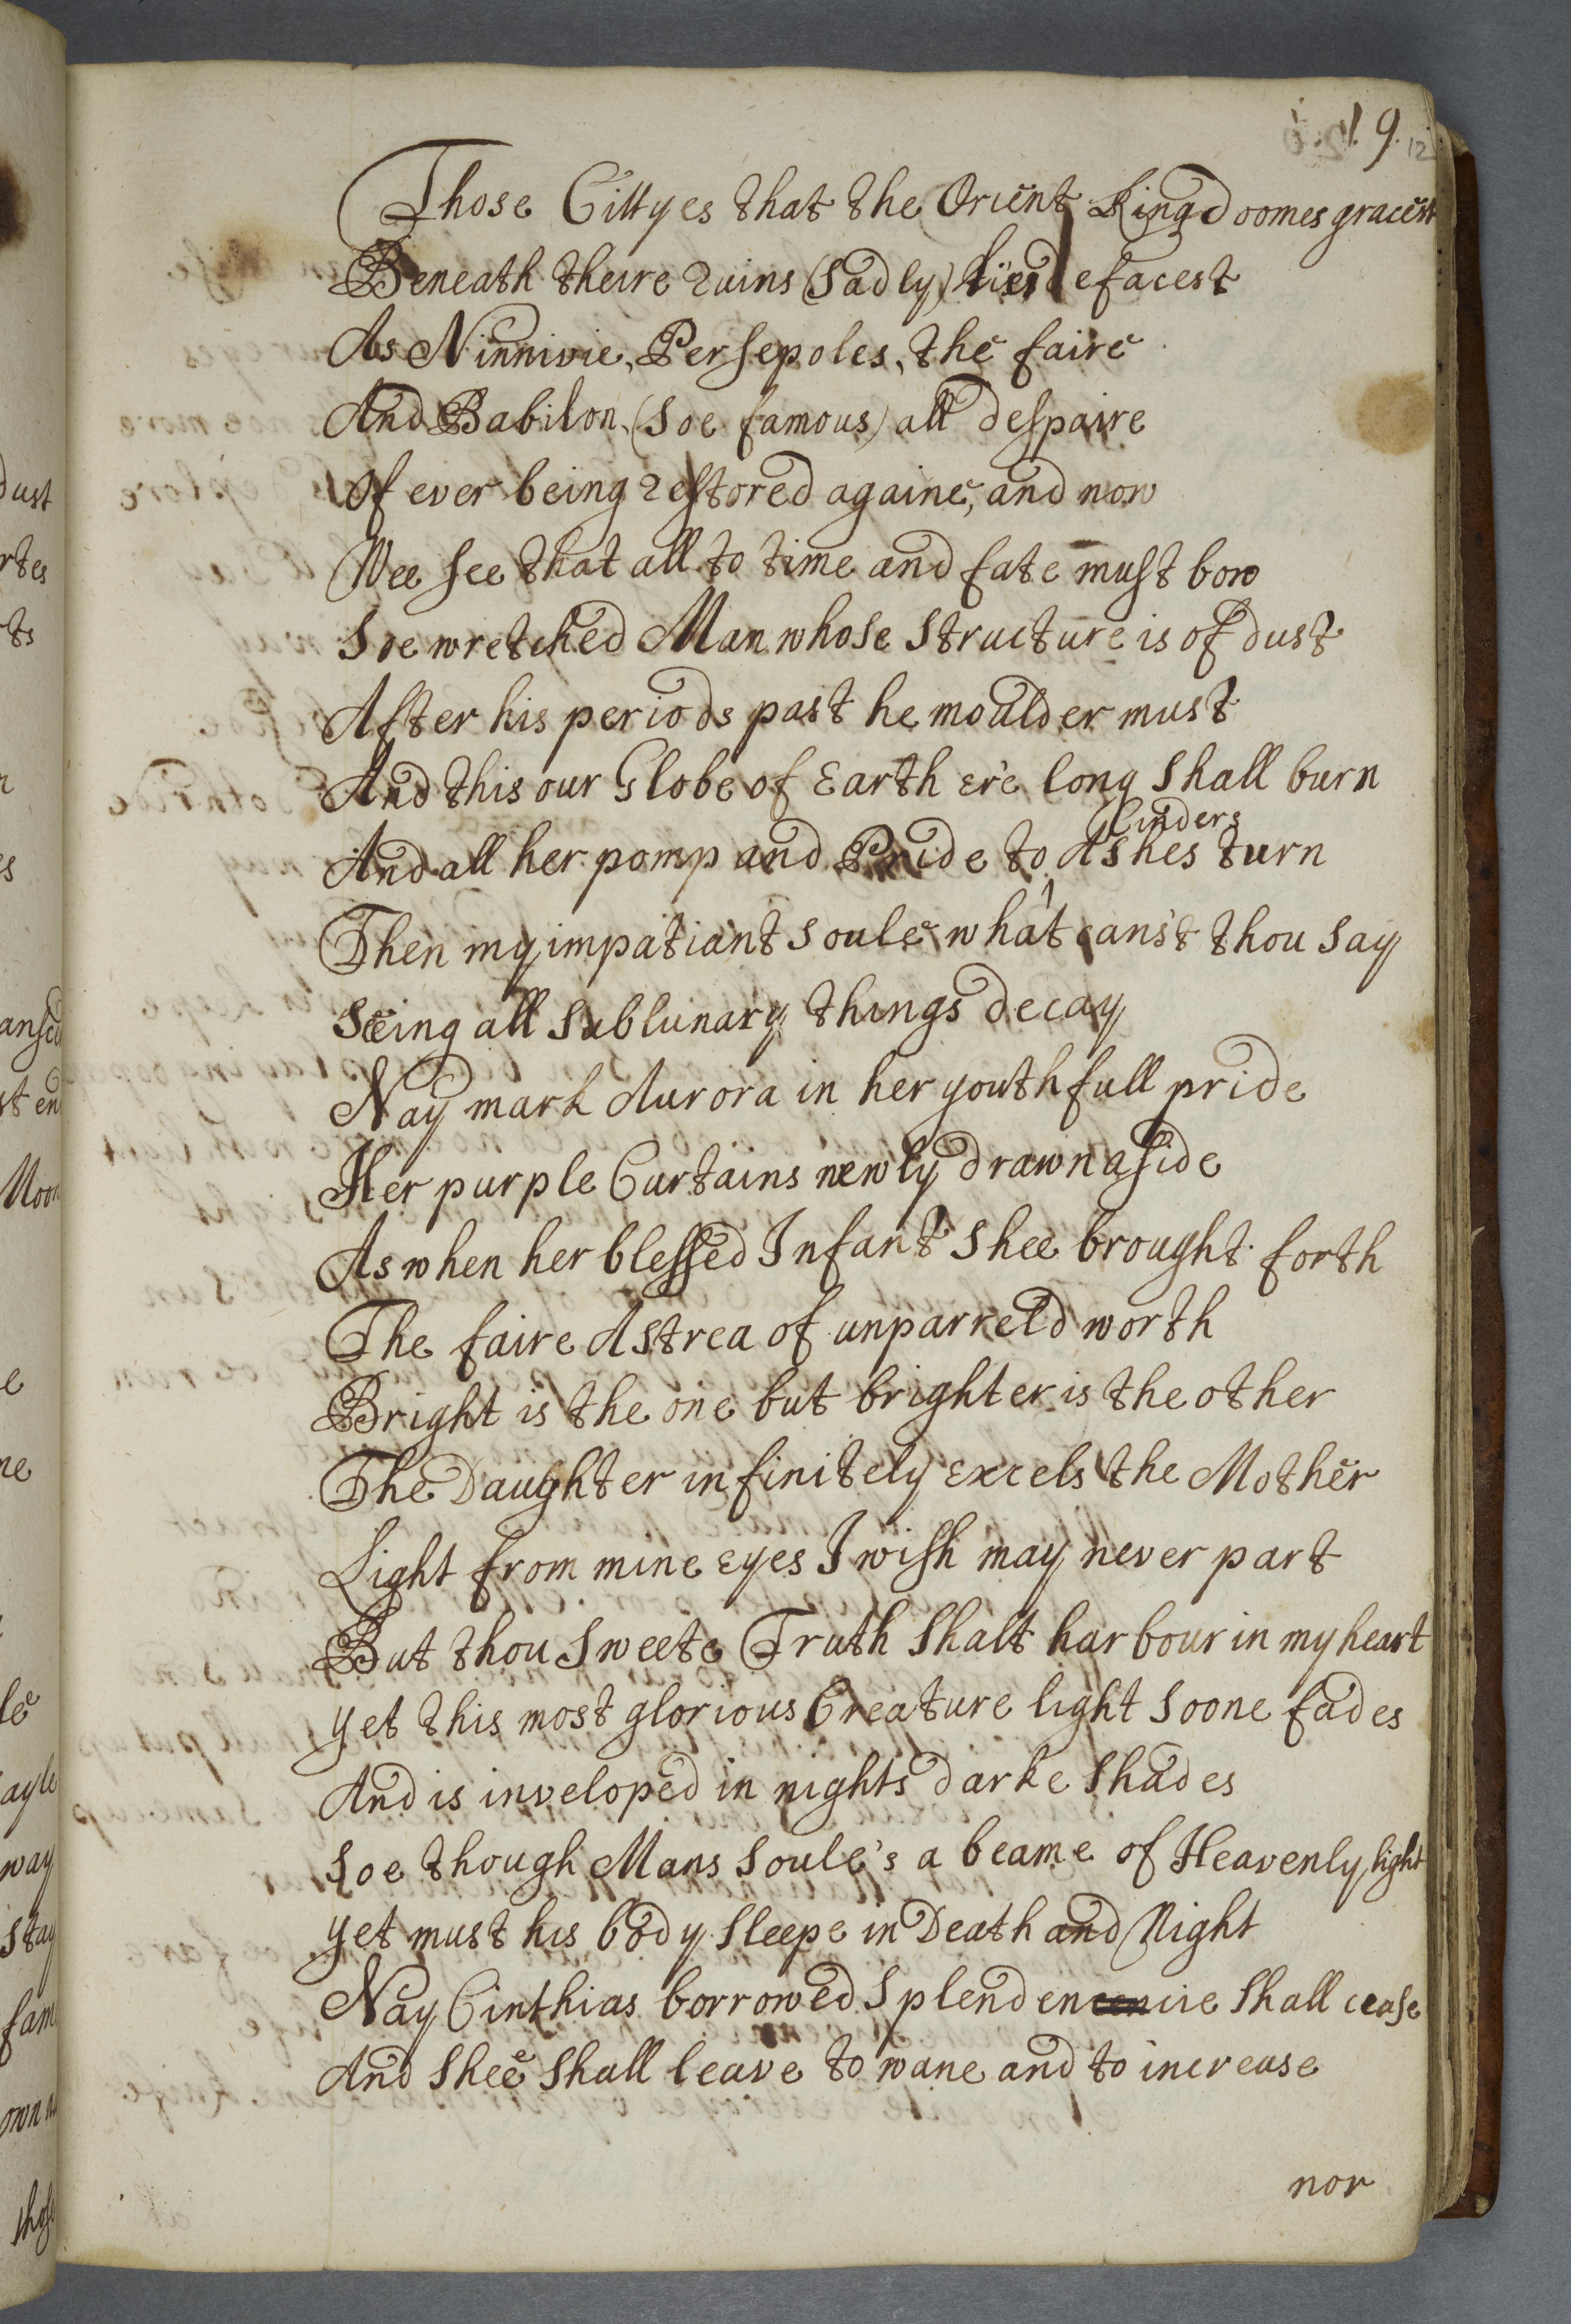 19.
12
Those Cittyes that the Orient Kingdoomes gracest
Beneath theire Ruins (Sadly) lies defacest
As Ninnivie, Persepoles, the faire
And Babilon, (Soe famous) all despaire
Of ever being Restored againe, and now
Wee see that all to time and fate must bow
Soe wretched Man whose Structure is of dust
After his periods past he moulder must
And this our Globe of Earth ere long Shall burn
Cinders
And all her pomp and Pride to Ashes turn
Then my impatiant Soule what cans't thou Say
Seeing all Sublunary things decay
Nay mark Aurora in her youthfull pride
Her purple Curtains newly drawn aside
As when her blessed Infant Shee brought forth
The faire Astrea of unparreld worth
Bright is the one but brighter is the other
The Daughter infinitely Excels the Mother
Light from mine Eyes I wish may never part
But thou Sweete Truth Shalt harbour in my heart
yet this most glorious Creature light Soone fades
And is inveloped in nights darke Shades
Soe though Mans Soule's a beame of Heavenly light
yet must his body Sleepe in Death and Night
Nay Cinthias borrowed Splendencie Shall cease
And Shee Shall leave to wane and to increase
nor
dust
rtes
rts
st en
Moon
way
Stay